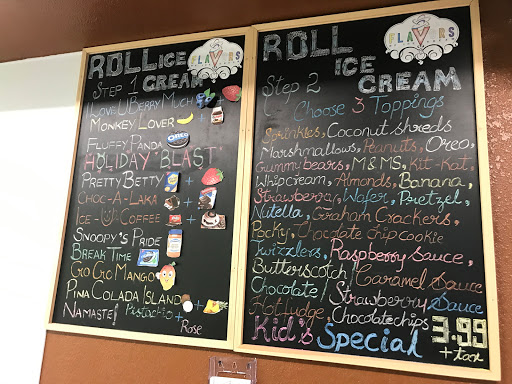 ROLL ICE CREAM
FLAVORS
STEP 1
I LOVE U BERRY MUCH
MONKEY LOVER
FLUFFY PANDA
OREO
HOLIDAY "BLAST"
PRETTY BETTY
CHOC-A-LAKA
ICE-COFFEE
SNOOPY'S PRIDE
BREAK TIME
GO GO MANGO
PINA COLADA ISLAND
NAMASTE! Pistachio + Rose
ROLL ICE CREAM
FLAVORS
Step 2
Choose 3 Toppings
Sprinkles, Coconut shreds
Marshmallows, Peanuts, Oreo,
Gummybears, M&MS, Kit-Kat,
Whipcream, Almonds, Banana,
Strawberry, Wafer, Pretzel,
Nutella, Graham Crackers,
Pocky, Chocolate chip cookie
Twizzlers, Raspberry Sauce,
Butterscotch / Caramel Sauce
Chocolate / Strawberry Sauce
Hot fudge, Chocolate chips
Kid's Special 3.99
+ tax